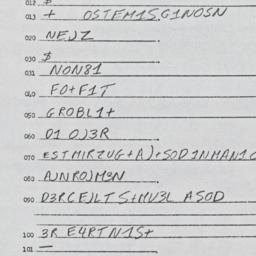 012 $
013 + OSTEM1S,G1NOSN
020 NEJZ
030 $
031 NON81
040 FO+F1T
050 GROBL1+
060 O1 OJ3R
070 ESTMIRZUG+A)+SOD1NMAN1C
080 AJNROJM3N
090 D3RCEJLTS+MU3L ASOD
100 3R E4RTN1S+
101 —